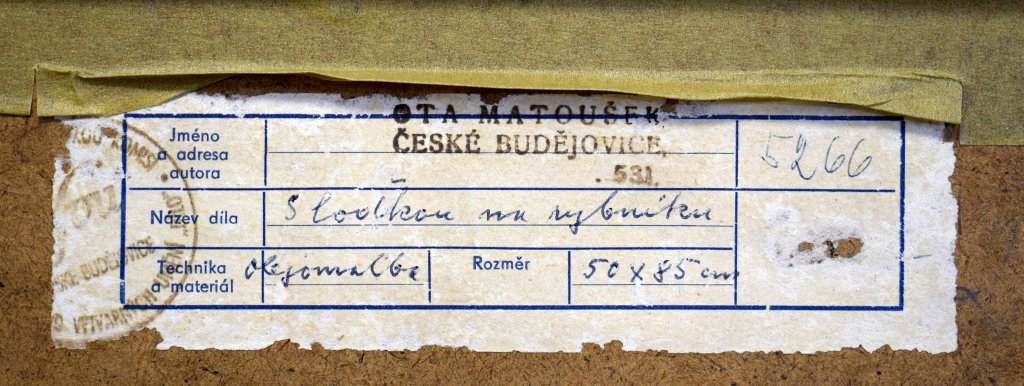 OTA MATOUŠEK
ČESKÉ BUDĚJOVICE,
531.
Jméno
a adresa
autora
5266
Název díla
S loďkou na rybníku
Technika
a materiál
Olejomalba
Rozměr
50 x 85 cm
BUDĚJOVICE